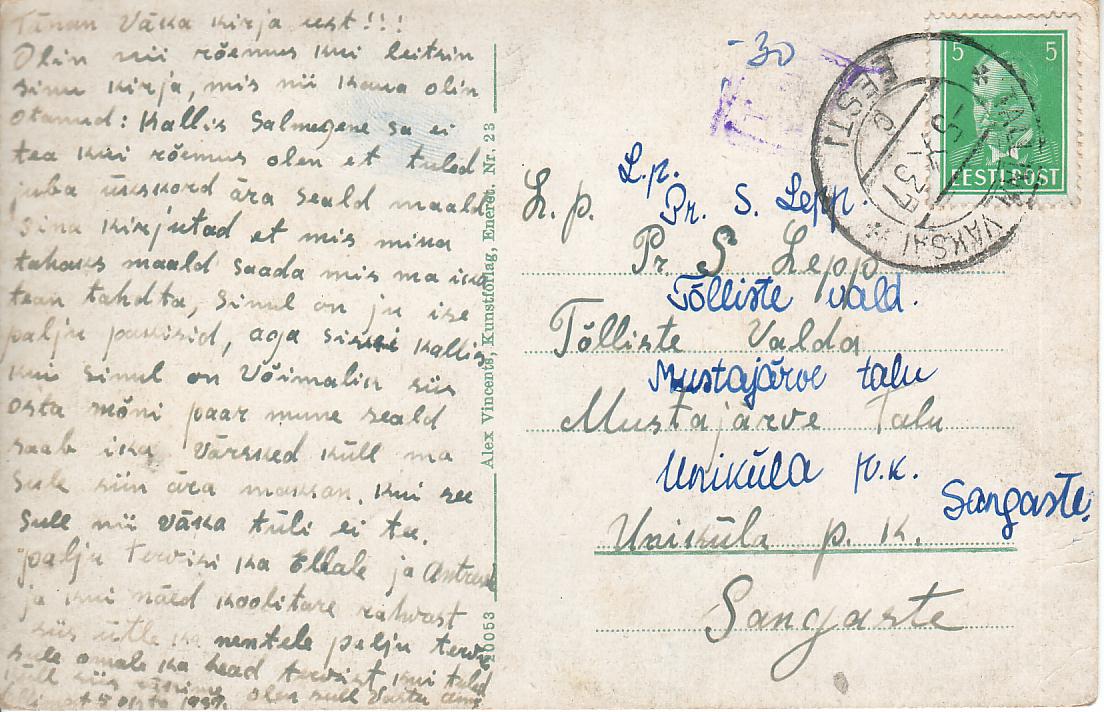 Tänan Väka kirja eest!!!
Olin nii rõemus kui leitsin
sinu kirja, mis nii kaua olin
otanud: Kallis Salmegene sa ei
tea kui rõemus olen et tuled
juba ükskord ära seald maald
Sina kirjutad et mis mina
tahaks maald saada mis ma ika
tean tahdta, Sinul on ju ise
palju pakisid, aga siski kallis
kui sinul on Võimalik siis
osta mõni paar mune seald
saab ika Värsked küll ma
sule siin ära maksan, kui see
sull nii väka tüli ei te.
palju Tervisi ka Ellale ja
ja kui näed koolitare rahvast
siis ütle ka nentele palju tervi
sule omale ka head tervist kui tuled
küll siis
5 1937. olen sull Vasta
Alex Vincents, Kunstforlag, Eneret. Nr. 23
10053
-30
5 5
EESTI POST
EESTI
VAKSAL
L.p.
Pr. S. Lepp.
Tõlliste vald.
Mustajärve talu
Uniküla p.k.
Sangaste.
L. p.
Pr S Lepp
Tõlliste Valda
Mustajärve Talu
Uniküla p. k.
Sangaste